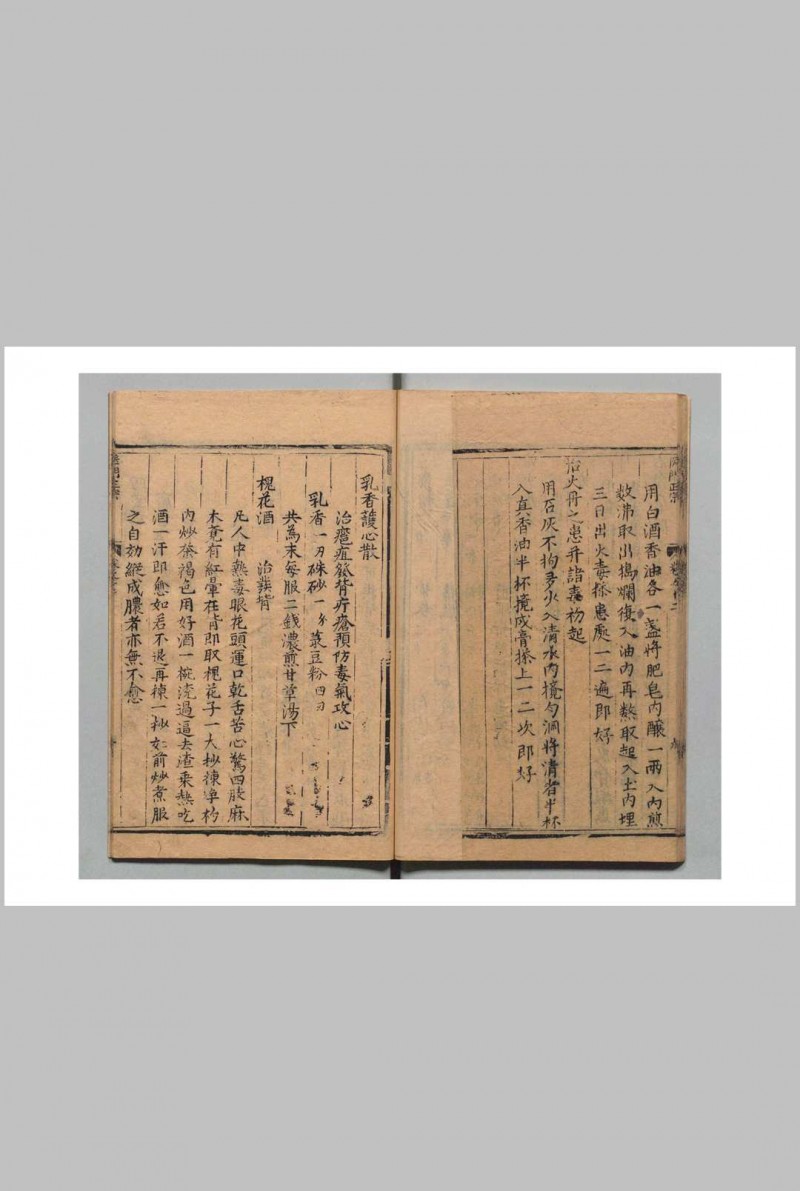 用白酒香油各一盞將肥皂肉釀一兩入內煎
数沸取出搗爛復入油內再熬取起入土內埋
三日出火毒搽患處一二遍即好
治火丹之患并諸毒初起
用石灰不拘多少入清水內攪匀澗將清者半杯
入真香油半杯攪成膏搽上一二次即好
乳香護心散
治癰疽發背疔瘡預防毒氣攻心
乳香一刃硃砂一分菉豆粉四刃
共為末每服二錢濃煎甘草湯下
槐花酒　治發背
凡人中熱毒眼花頭運口乾舌苦心驚四肢麻
木竟有紅暈在背即取槐花子一大抄揀淨杓
內炒茶褐色用好酒一椀澆過逼去渣乘熱吃
酒一汗即愈如若不退再揀一抄如前炒煮服
之自効縱成膿者亦無不愈